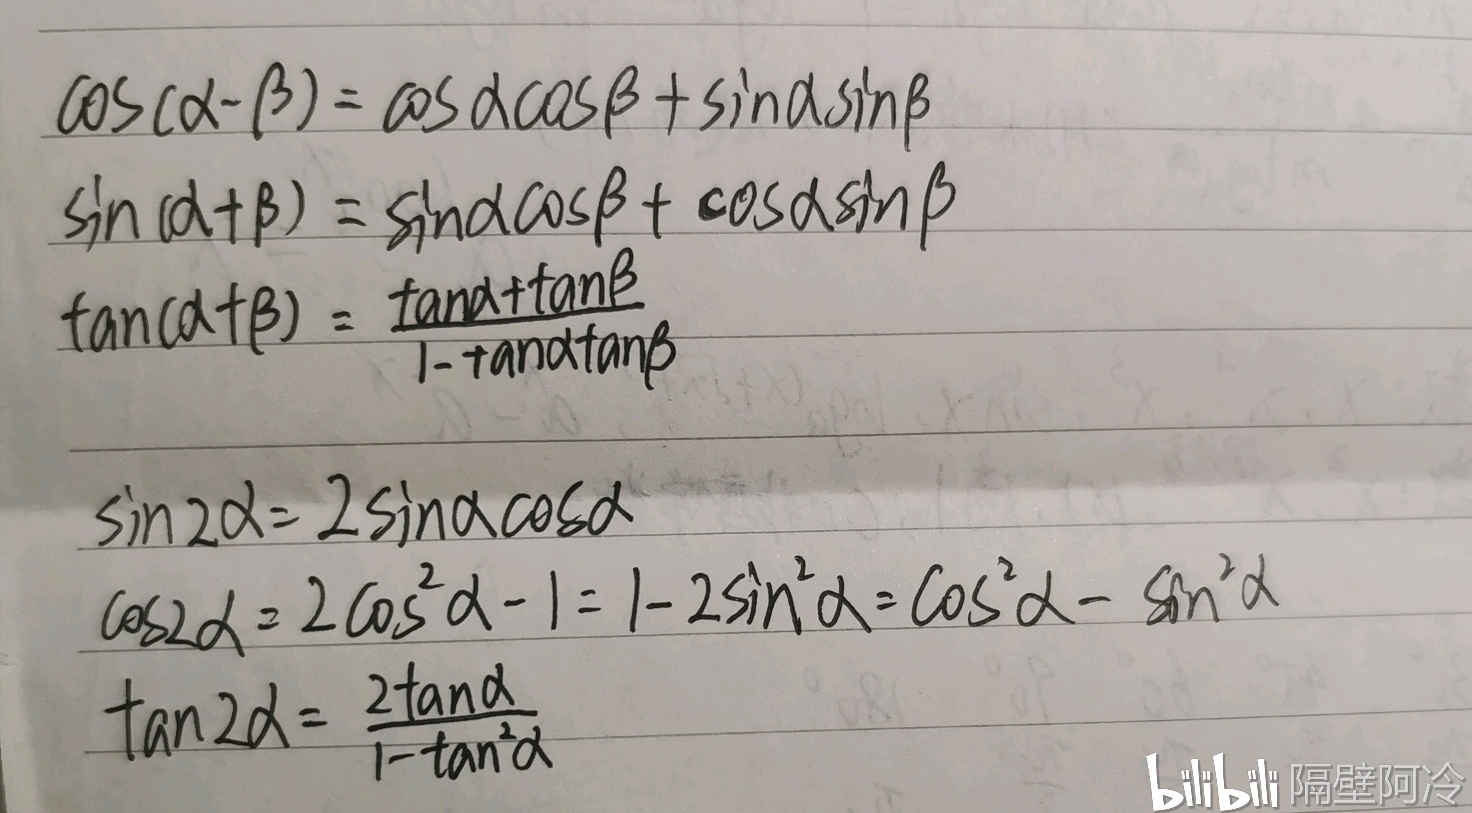 cos(α-β)=cosαcosβ+sinαsinβ
sin(α+β)=sinαcosβ+cosαsinβ
tan(α+β)=\frac{tanα+tanβ}{1-tanαtanβ}
sin2α=2sinαcosα
cos2α=2cos²α-1=1-2sin²α=cos²α-sin²α
tan2α=\frac{2tanα}{1-tan²α}
bilibili 隔壁阿冷